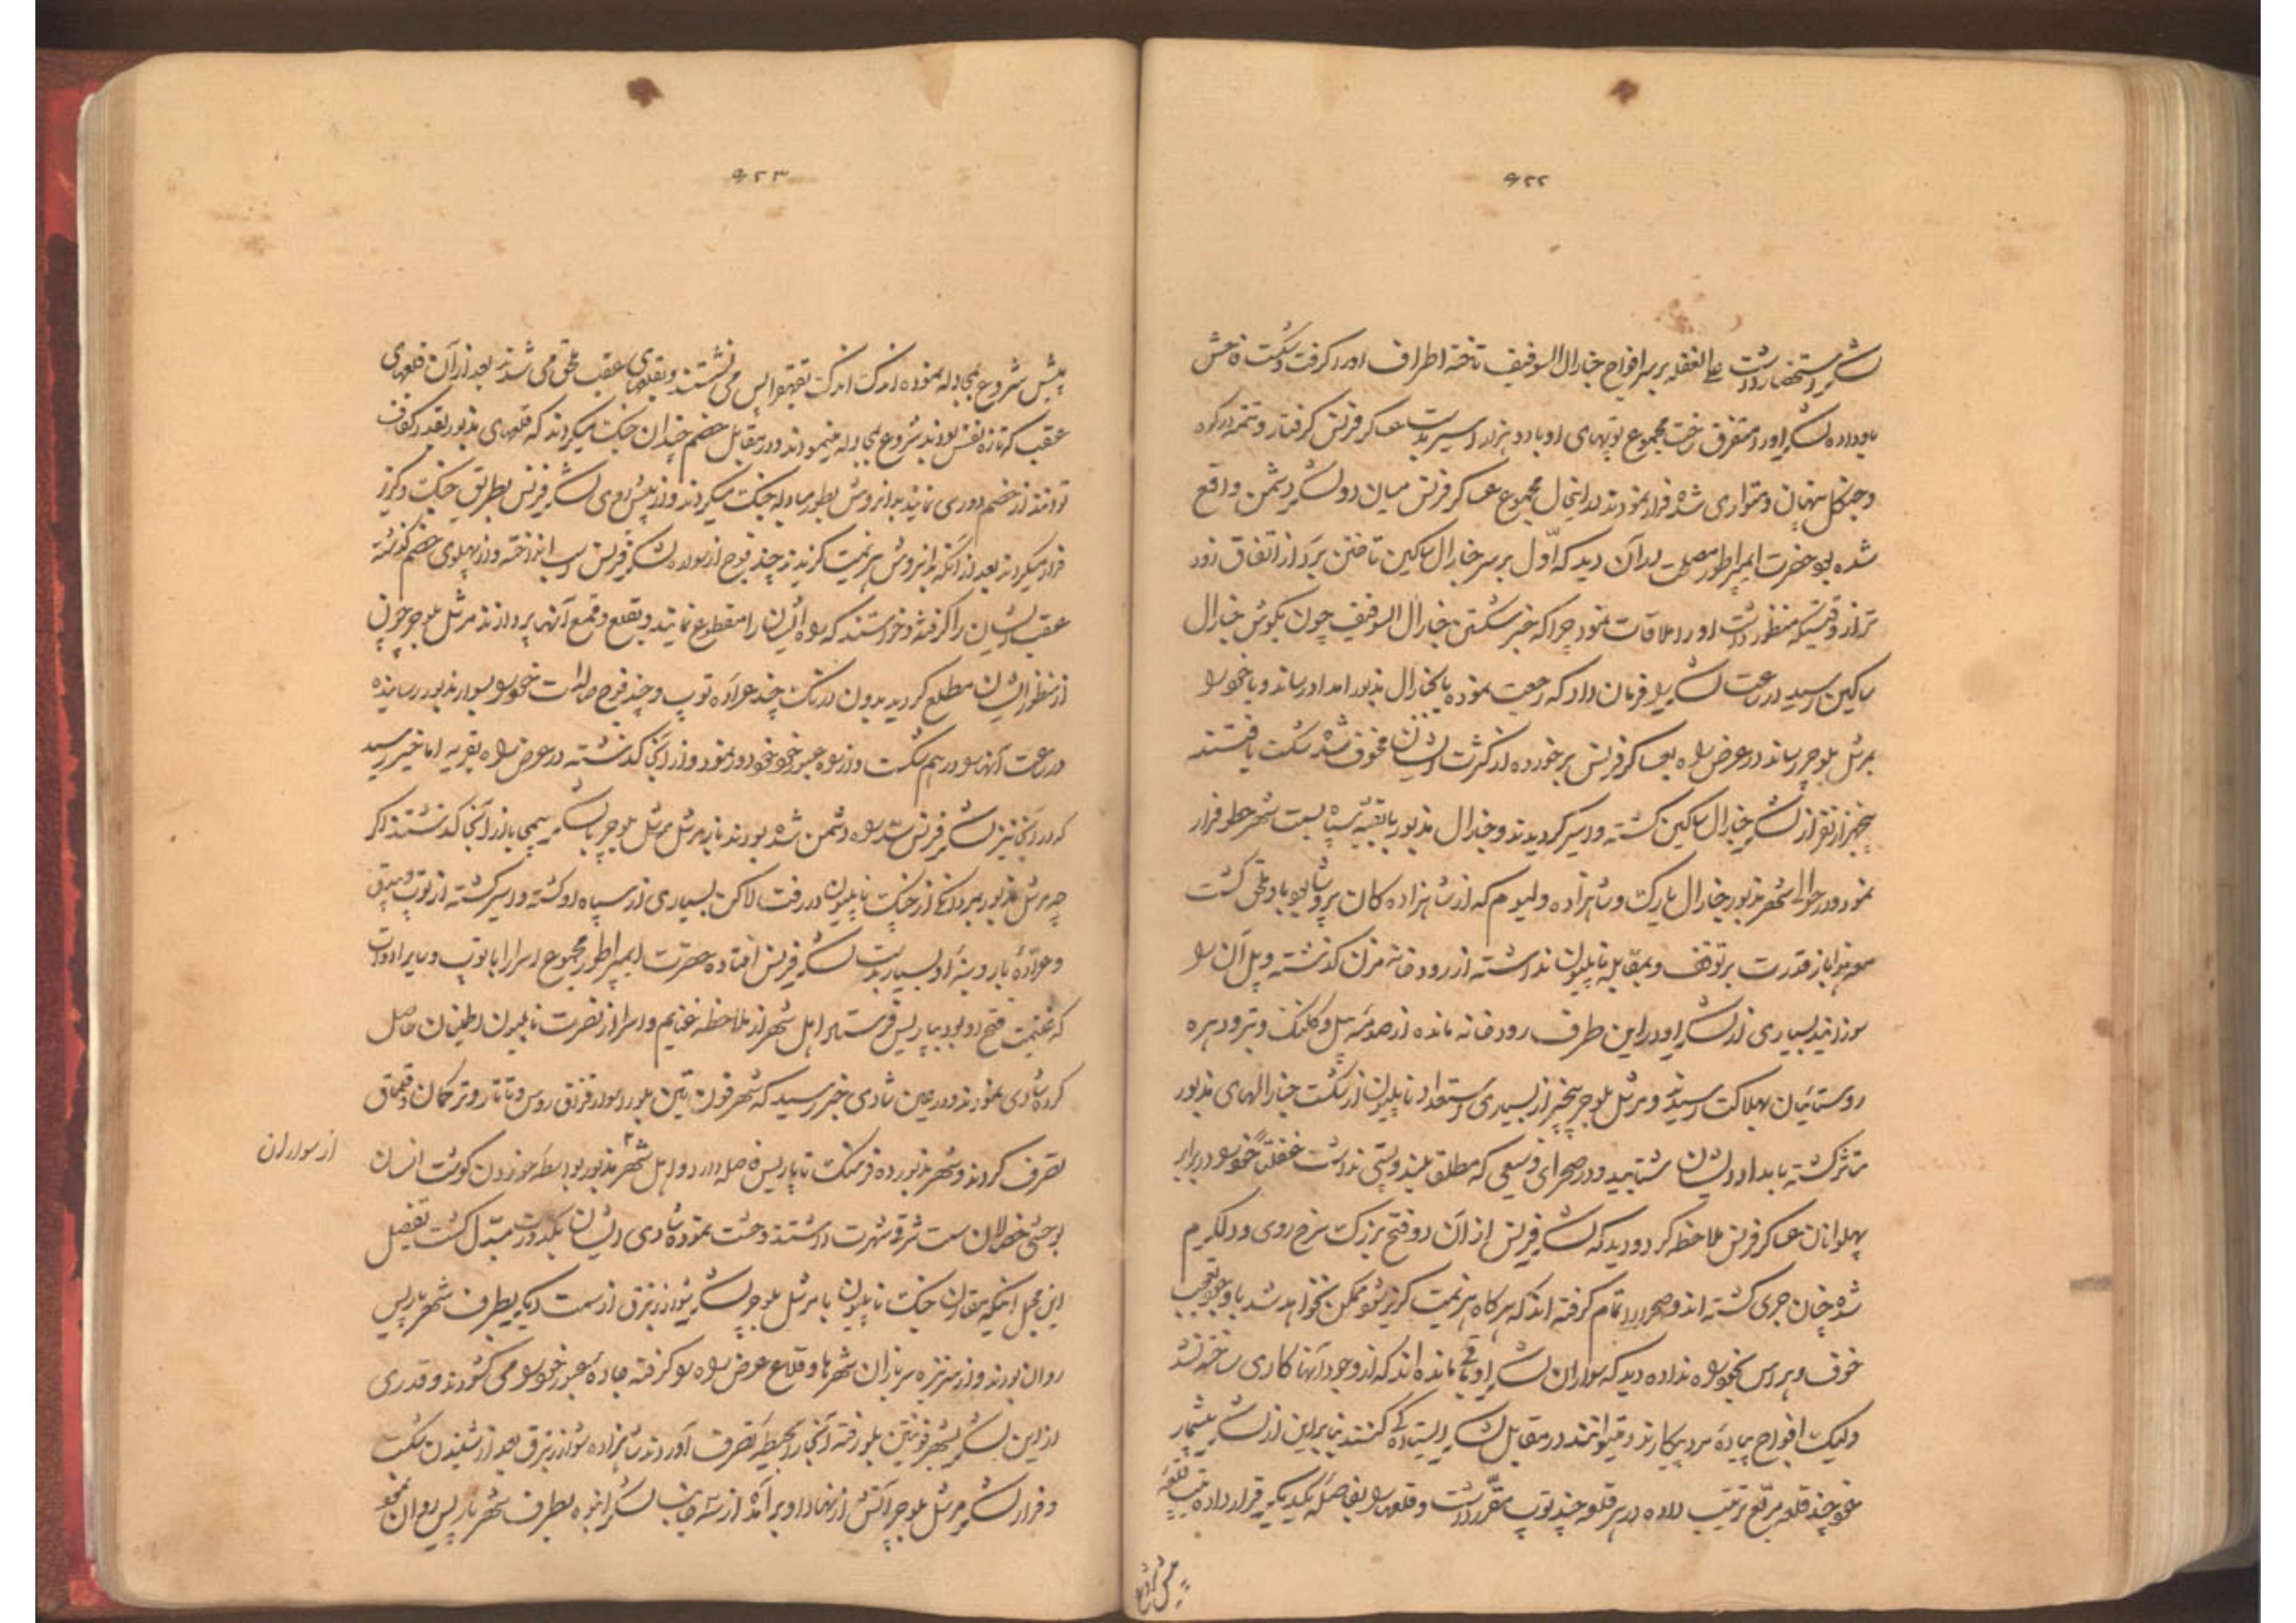 ۶۲۲
لشکر مستحضار داشت علی الغفله بر سر افواج جنارال السوفیف تاخته اطراف اورا گرفت و شکست فاحش
باو داده لشکر اورا متفرق ساخت مجموع توپهای او با دو هزار اسیر بدست عساکر فرنس گرفتار و تتمه در کوه
و جنگل پنهان و متواری شده فرار نمودند در اینحال مجموع عساکر فرنس میان دو لشکر دشمن واقع
شده بود حضرت ایمپراطور مصلحت در آن دید که اول بر سر جنارال ساکین تاختن برد از اتفاق زود
تر از وقتیکه منظور داشت اورا ملاقات نمود چرا که خبر شکستن جنارال السوفیف چون بگوش جنارال
ساکین رسید در ساعت لشکر را فرمان داد که رجعت نموده یا بجنارال مذبور امداد رساند و یا خود را
بمرشل بلوچر رساند در عرض راه بعساکر فرنس برخورده از کثرت ایشان مخوف شده شکست یافتند
پنجهزار نفر از لشکر جنارال ساکین کشته و اسیر گردیدند و جنارال مذبور با بقیه سپاه بسمت شهر حطو فرار
نمود و در حوالی شهر مذبور جنارال یارک و شاهزاده ولیوم که از شاهزاده کان پروشا بود باو ملحق گشت
معهذا باز قدرت بر توقف و بمقابله ناپلیون نداشته از رودخانه مرن گذشته و پل آن را
سوزانید بسیاری از لشکر او در این طرف رودخانه مانده از صدمه بیل و کلنگ و تبر و دهره
روستائیان بهلاکت رسیدند و مرشل بلوچر بیخبر از بسیاری استعداد ناپلیون از شکست جنارالهای مذبور
متأثر گشته بامداد ایشان شتابید و در صحرای وسیعی که مطلق بلند و پستی نداشت غفلتاً خود را در برابر
پهلوانان عساکر فرنس ملاحظه کرد و دید که لشکر فرنس از آن دو فتح بزرگ سرخ روی و دلگرم
شده چنان جری گشته اند و صحرا را تمام گرفته اند که هرگاه هزیمت گریز شود ممکن نخواهد شد با وجود تعجب
خوف و هراس بخود راه نداده دید که سواران لشکر او قلی مانده اند که از وجود آنها کاری ساخته نشد
ولیک افواج پیاده مرد پیکارند و میتوانند در مقابل لشکر ایستادگی کنند بنابراین از لشکر بیشمار
خود چند قلعه مربع ترتیب داده در هر قلعه چند توپ مقرر داشت و قلعها را بفاصله یکدیگر قرار داده قلعه
پیش شروع
۶۲۳
پیش شروع بمجادله نموده اندک اندک بقهقرا پس می نشستند و بقلعهای عقب ملحق می شدند بعد از آن قلعهای
عقب که تازه نفس بودند شروع بمجادله مینمودند و در مقابل خصم چندان جنگ میکردند که قلعهای مذبور بقدر کفاف
توانند از خصم دوری نمایند بر این روش بطور مبادله جنگ میکردند و از پیش روی لشکر فرنس بطریق جنگ و گریز
فرار میکردند بعد از آنکه بر این روش هزیمت گزیدند چند فوج از سواره لشکر فرنس اسب انداخته و از پهلوی خصم گذشته
عقب ایشان را گرفتند و خواستند که راه ایشان را مقطوع نمایند و بقلع و قمع آنها پردازند مرشل بلوچر چون
از منظور ایشان مطلع گردید بدون درنگ چند عراده توپ و چند فوج صالدات خود را بسوار مذبور رسانیده
در ساعت آنها را در هم شکست و از راه عبور خود دور نمود و از آنجا گذشته در عرض راه بقریه اما خیر رسید
که در آنجا نیز لشکر فرنس سد راه دشمن شده بودند باز مرشل بلوچر با لشکر پیمی با از آنجا گذشتند اگر
چه مرشل مذبور بمردانگی از جنگ ناپلیون در رفت لاکن بسیاری از سپاه او کشته و اسیر گشته از توپ و بیدق
و عراده بار و بنه او بسیار بدست لشکر فرنس افتاده حضرت ایمپراطور مجموع اسرا را با توپ و سایر ادوات
که غنیمت فتح او بود بپاریس فرستاد اهل شهر از ملاحظه غنایم و اسرا از نصرت ناپلیون اطمینان حاصل
کرده شادی نمودند و در عین شادی خبر رسید که شهر فون تین بلو را سوار قزاق روس و تاتار و ترکمان و قلماق
تصرف کردند و شهر مذبور ده فرسنگ تا پاریس فاصله دارد و اهل شهر مذبور بواسطه خوردن گوشت انسان
از سواران
بوحشی خصالان سمت شرق شهرت داشتند وحشت نموده شادی ایشان بکدورت مبدل گشت تفصیل
این مجمل اینکه بمقارن جنگ ناپلیون با مرشل بلوچر لشکر شوارزنبرق از سمت دیگر بطرف شهر پاریس
روان بودند و از سر نیزه سربازان شهرها و قلاع عرض راه را گرفته جاده عبور خود را می گشودند و قدری
از این لشکر بشهر فونتین بلو رفته آنجا را بحیطه تصرف آوردند شاهزاده شوارزنبرق بعد از شنیدن شکست
و فرار لشکر مرشل بلوچر آتش از نهاد او بر آمد از سه جانب لشکر انبوه بطرف شهر پاریس روان نمود